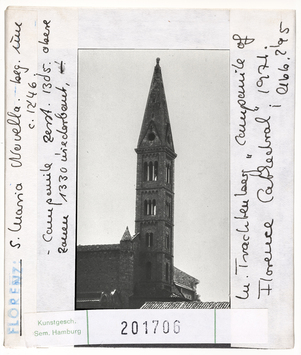 FLORENZ
S. Maria Novella. beg. um
c. 1246
- Campanile zerst. 1305. obere
zonen 1330 wiederbaut,
M. Trachtenberg „Campanile of
Florence Cathedral" 1971.
Abb. 295
Kunstgesch.
Sem. Hamburg
201706